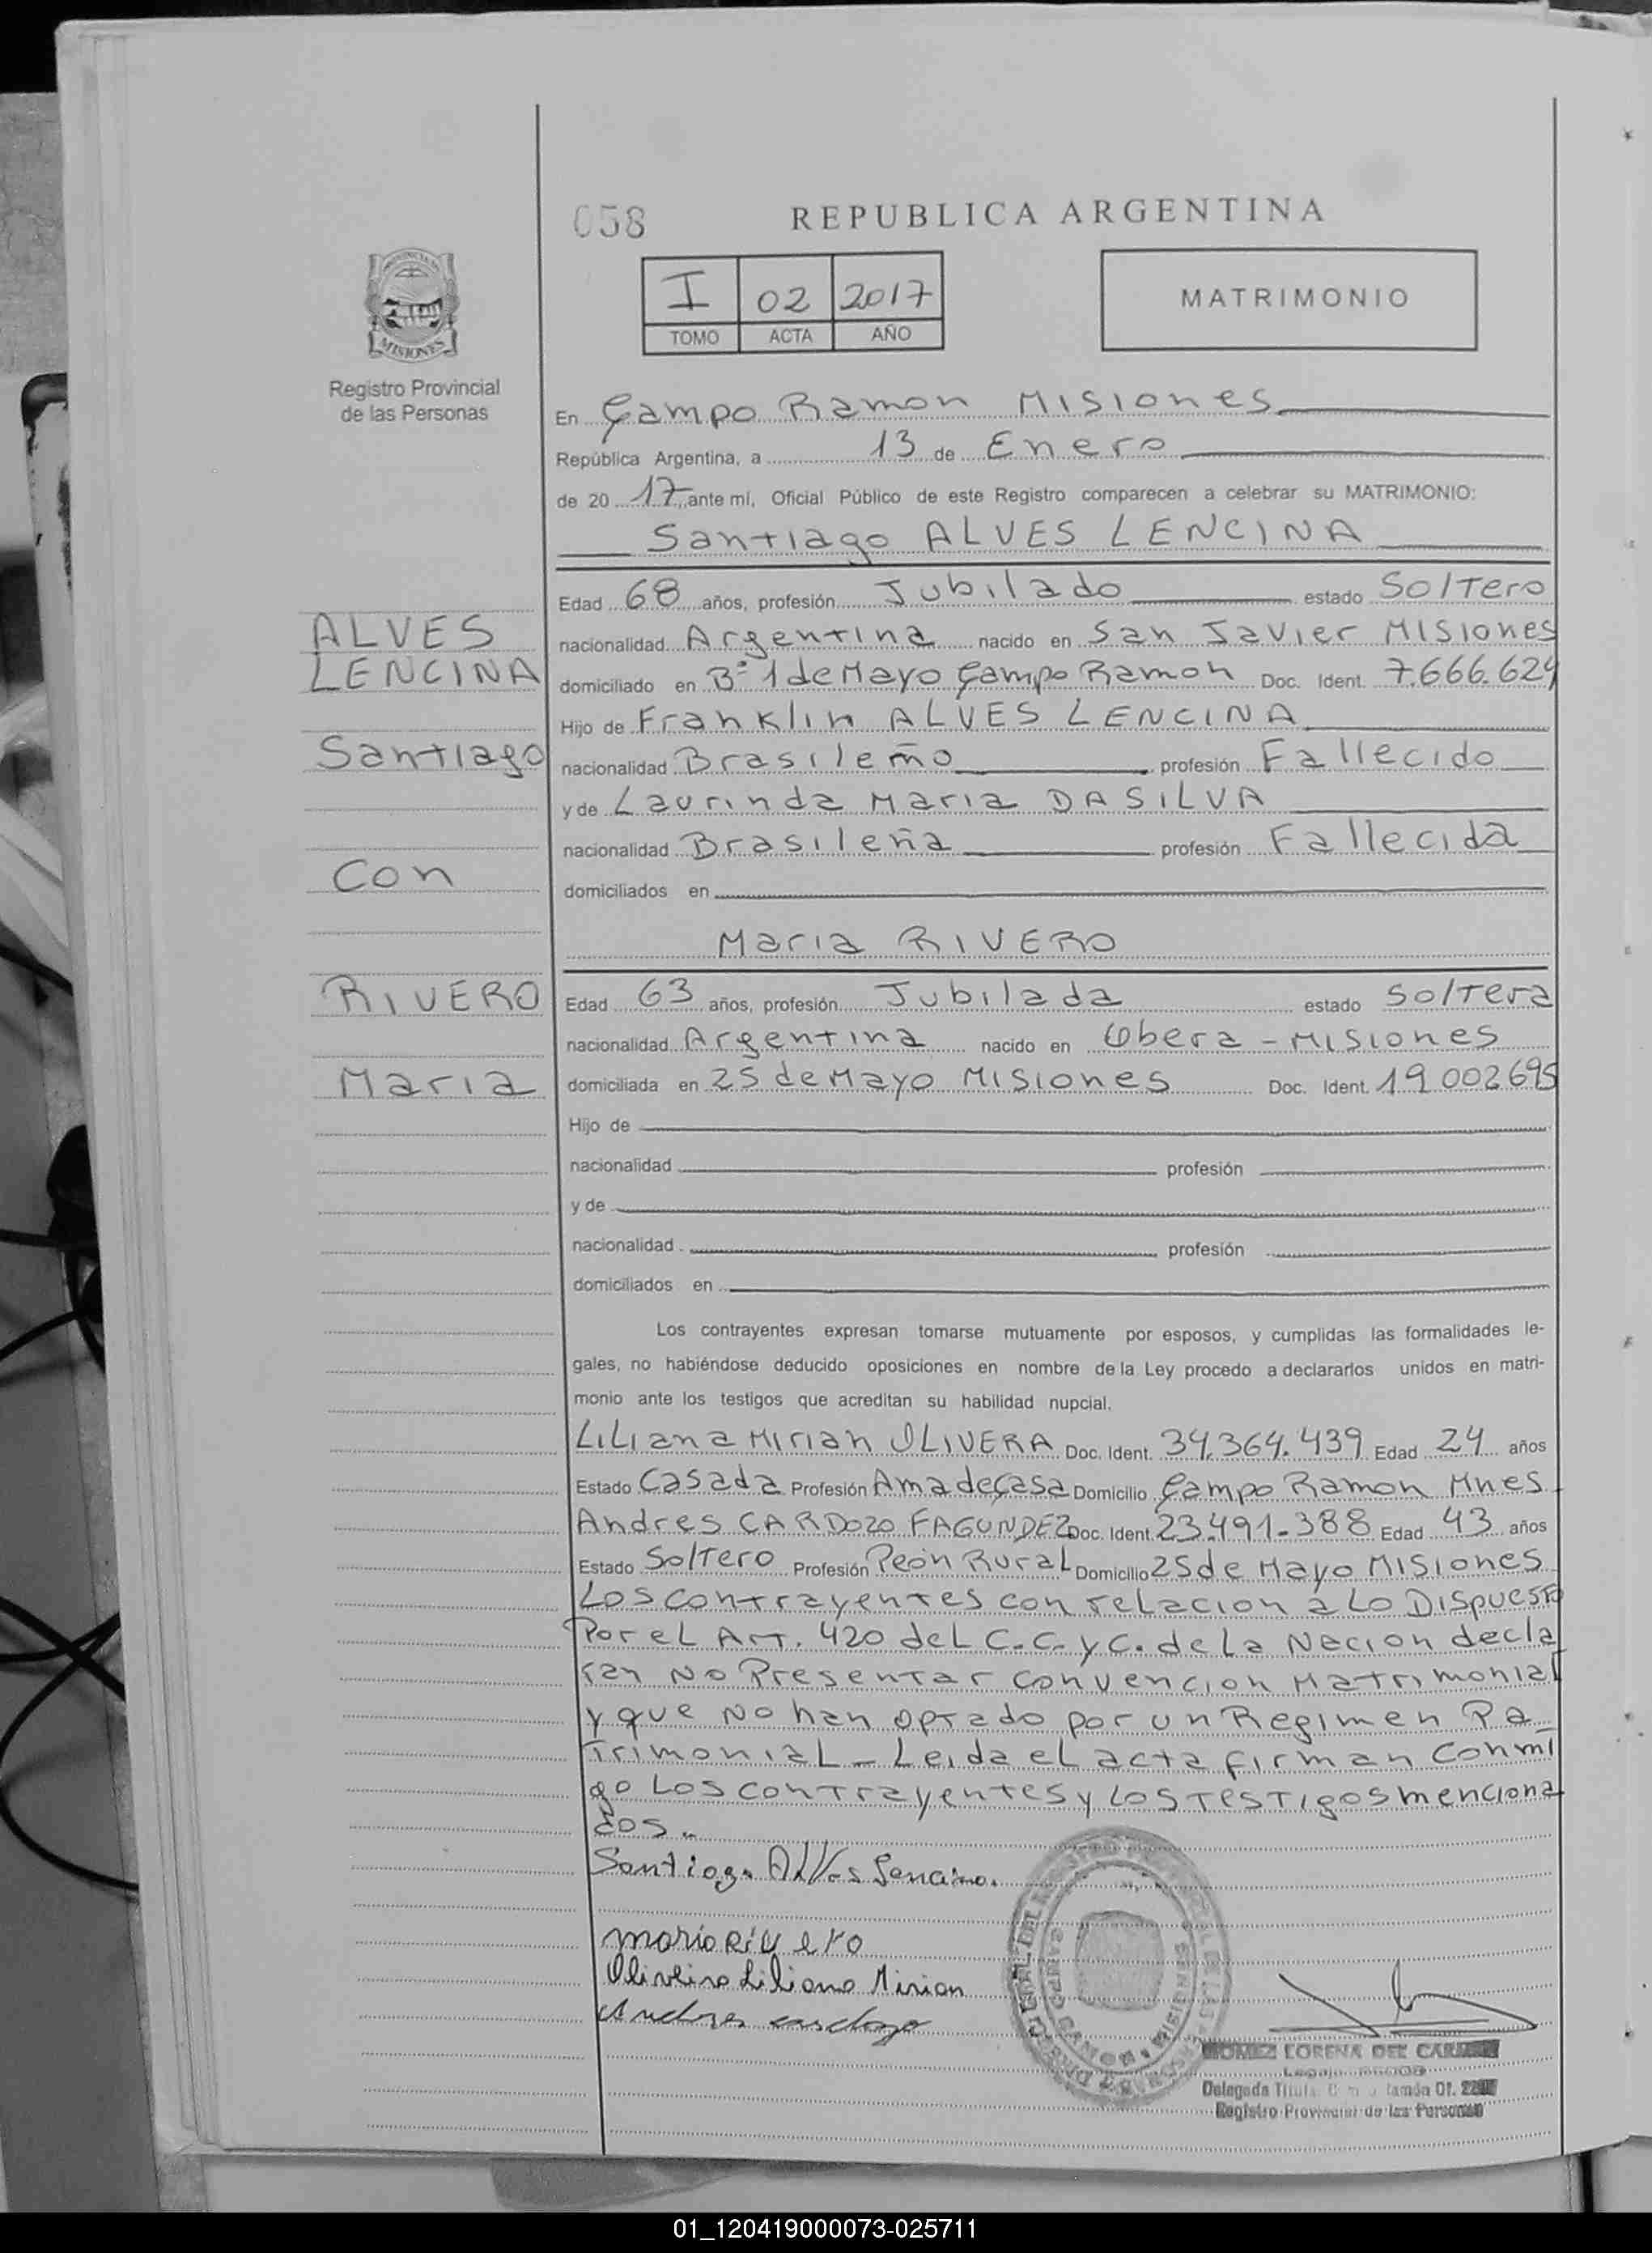 058
REPUBLICA ARGENTINA
I 02 2017
TOMO ACTA AÑO
MATRIMONIO
MISIONES
Registro Provincial
de las Personas
En Campo Ramon Misiones
República Argentina, a 13 de Enero
de 20 17 ante mí, Oficial Público de este Registro comparecen a celebrar su MATRIMONIO:
Santiago ALVES LENCINA
ALVES
LENCINA
Santiago
Con
RIVERO
Maria
Edad 68 años, profesión Jubilado estado Soltero
nacionalidad Argentina nacido en San Javier Misiones
domiciliado en Bº 1 de Mayo Campo Ramon Doc. Ident. 7.666.624
Hijo de Franklin ALVES LENCINA
nacionalidad Brasileño profesión Fallecido
y de Laurinda Maria DA SILVA
nacionalidad Brasileña profesión Fallecida
domiciliados en
Maria RIVERO
Edad 63 años, profesión Jubilada estado Soltera
nacionalidad Argentina nacido en Obera - Misiones
domiciliada en 25 de Mayo Misiones Doc. Ident. 19.002.695
Hijo de
nacionalidad profesión
y de
nacionalidad profesión
domiciliados en
Los contrayentes expresan tomarse mutuamente por esposos, y cumplidas las formalidades le-
gales, no habiéndose deducido oposiciones en nombre de la Ley procedo a declararlos unidos en matri-
monio ante los testigos que acreditan su habilidad nupcial.
Liliana Mirian OLIVERA Doc. Ident. 34.364.439 Edad 24 años
Estado Casada Profesión Ama de Casa Domicilio Campo Ramon Mnes
Andres CARDOZO FAGUNDEZ Doc. Ident. 23.491.388 Edad 43 años
Estado Soltero Profesión Peón Rural Domicilio 25 de Mayo Misiones
Los contrayentes con relacion a Lo Dispuesto
Por el Art. 420 del C.C. y C. de La Nacion decla
ran No Presentar convencion Matrimonial
y que No han optado por un Regimen Pa_
trimonial - Leida el acta firman conmi
go Los contrayentes y Los Testigos menciona
dos.-
Santiago Alves Lencina.
maria Rivero
Oliveira Liliana Mirian
Andres cardozo
CAMPO RAMON MISIONES
GOMEZ LORENA DEL CARMEN
Legajo
Delegada Titular Ramón Of.
Registro Provincial de las Personas
01_120419000073-025711